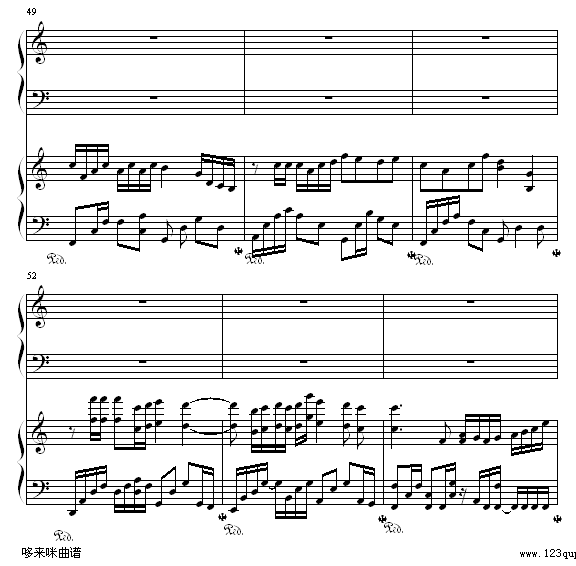 49
52
哆来咪曲谱
www.123qup